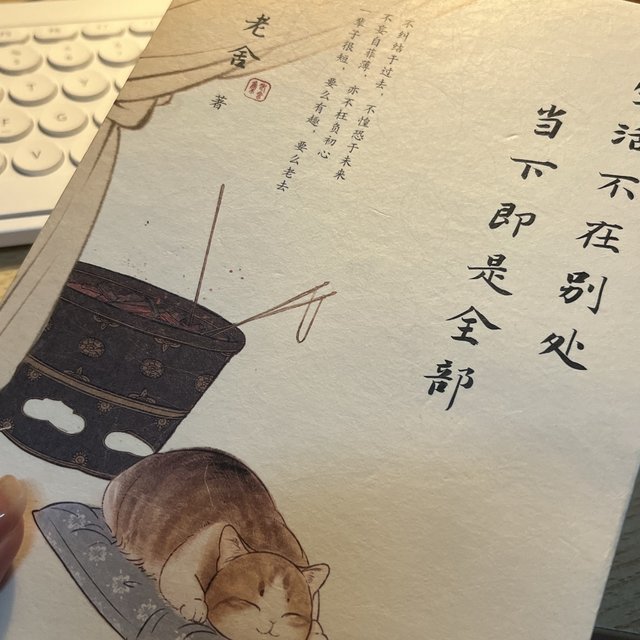 生活不在别处
当下即是全部
不纠结于过去，不惶恐于未来
不妄自菲薄，亦不枉负初心
一辈子很短，要么有趣，要么老去
老舍
著